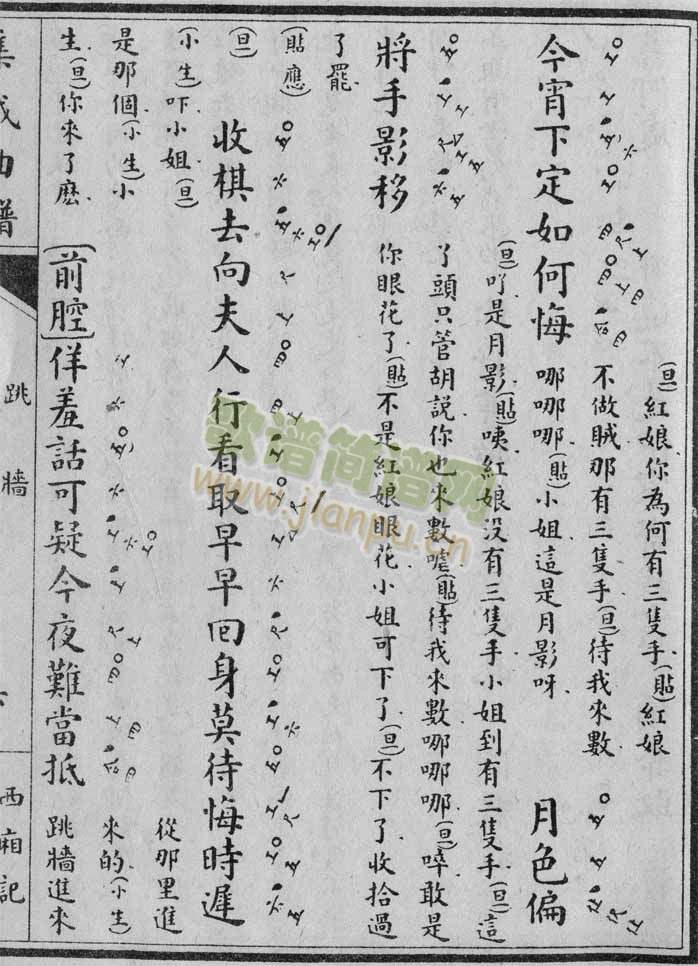 今宵下定如何悔
(旦)紅娘你為何有三隻手(貼)紅娘
不做賊那有三隻手(旦)待我來數
哪哪哪(貼)小姐這是月影呀
月色偏
將手影移
(旦)吖是月影(貼)咦紅娘没有三隻手小姐到有三隻手(旦)這
丫頭只管胡說你也來數嘘(貼)待我來數哪哪哪(旦)啐敢是
你眼花了(貼)不是紅娘眼花小姐可下了(旦)不下了收拾過
了罷
(貼應)
(旦)
收棋去向夫人行看取早早囘身莫待悔時遲
(小生)吓小姐(旦)
從那里進
是那個(小生)小
來的(小生)
生(旦)你來了麽
[前腔]佯羞話可疑今夜難當抵
跳牆進來
集成曲譜
跳牆
西廂記
歌谱简谱网
www.jianpu.cn